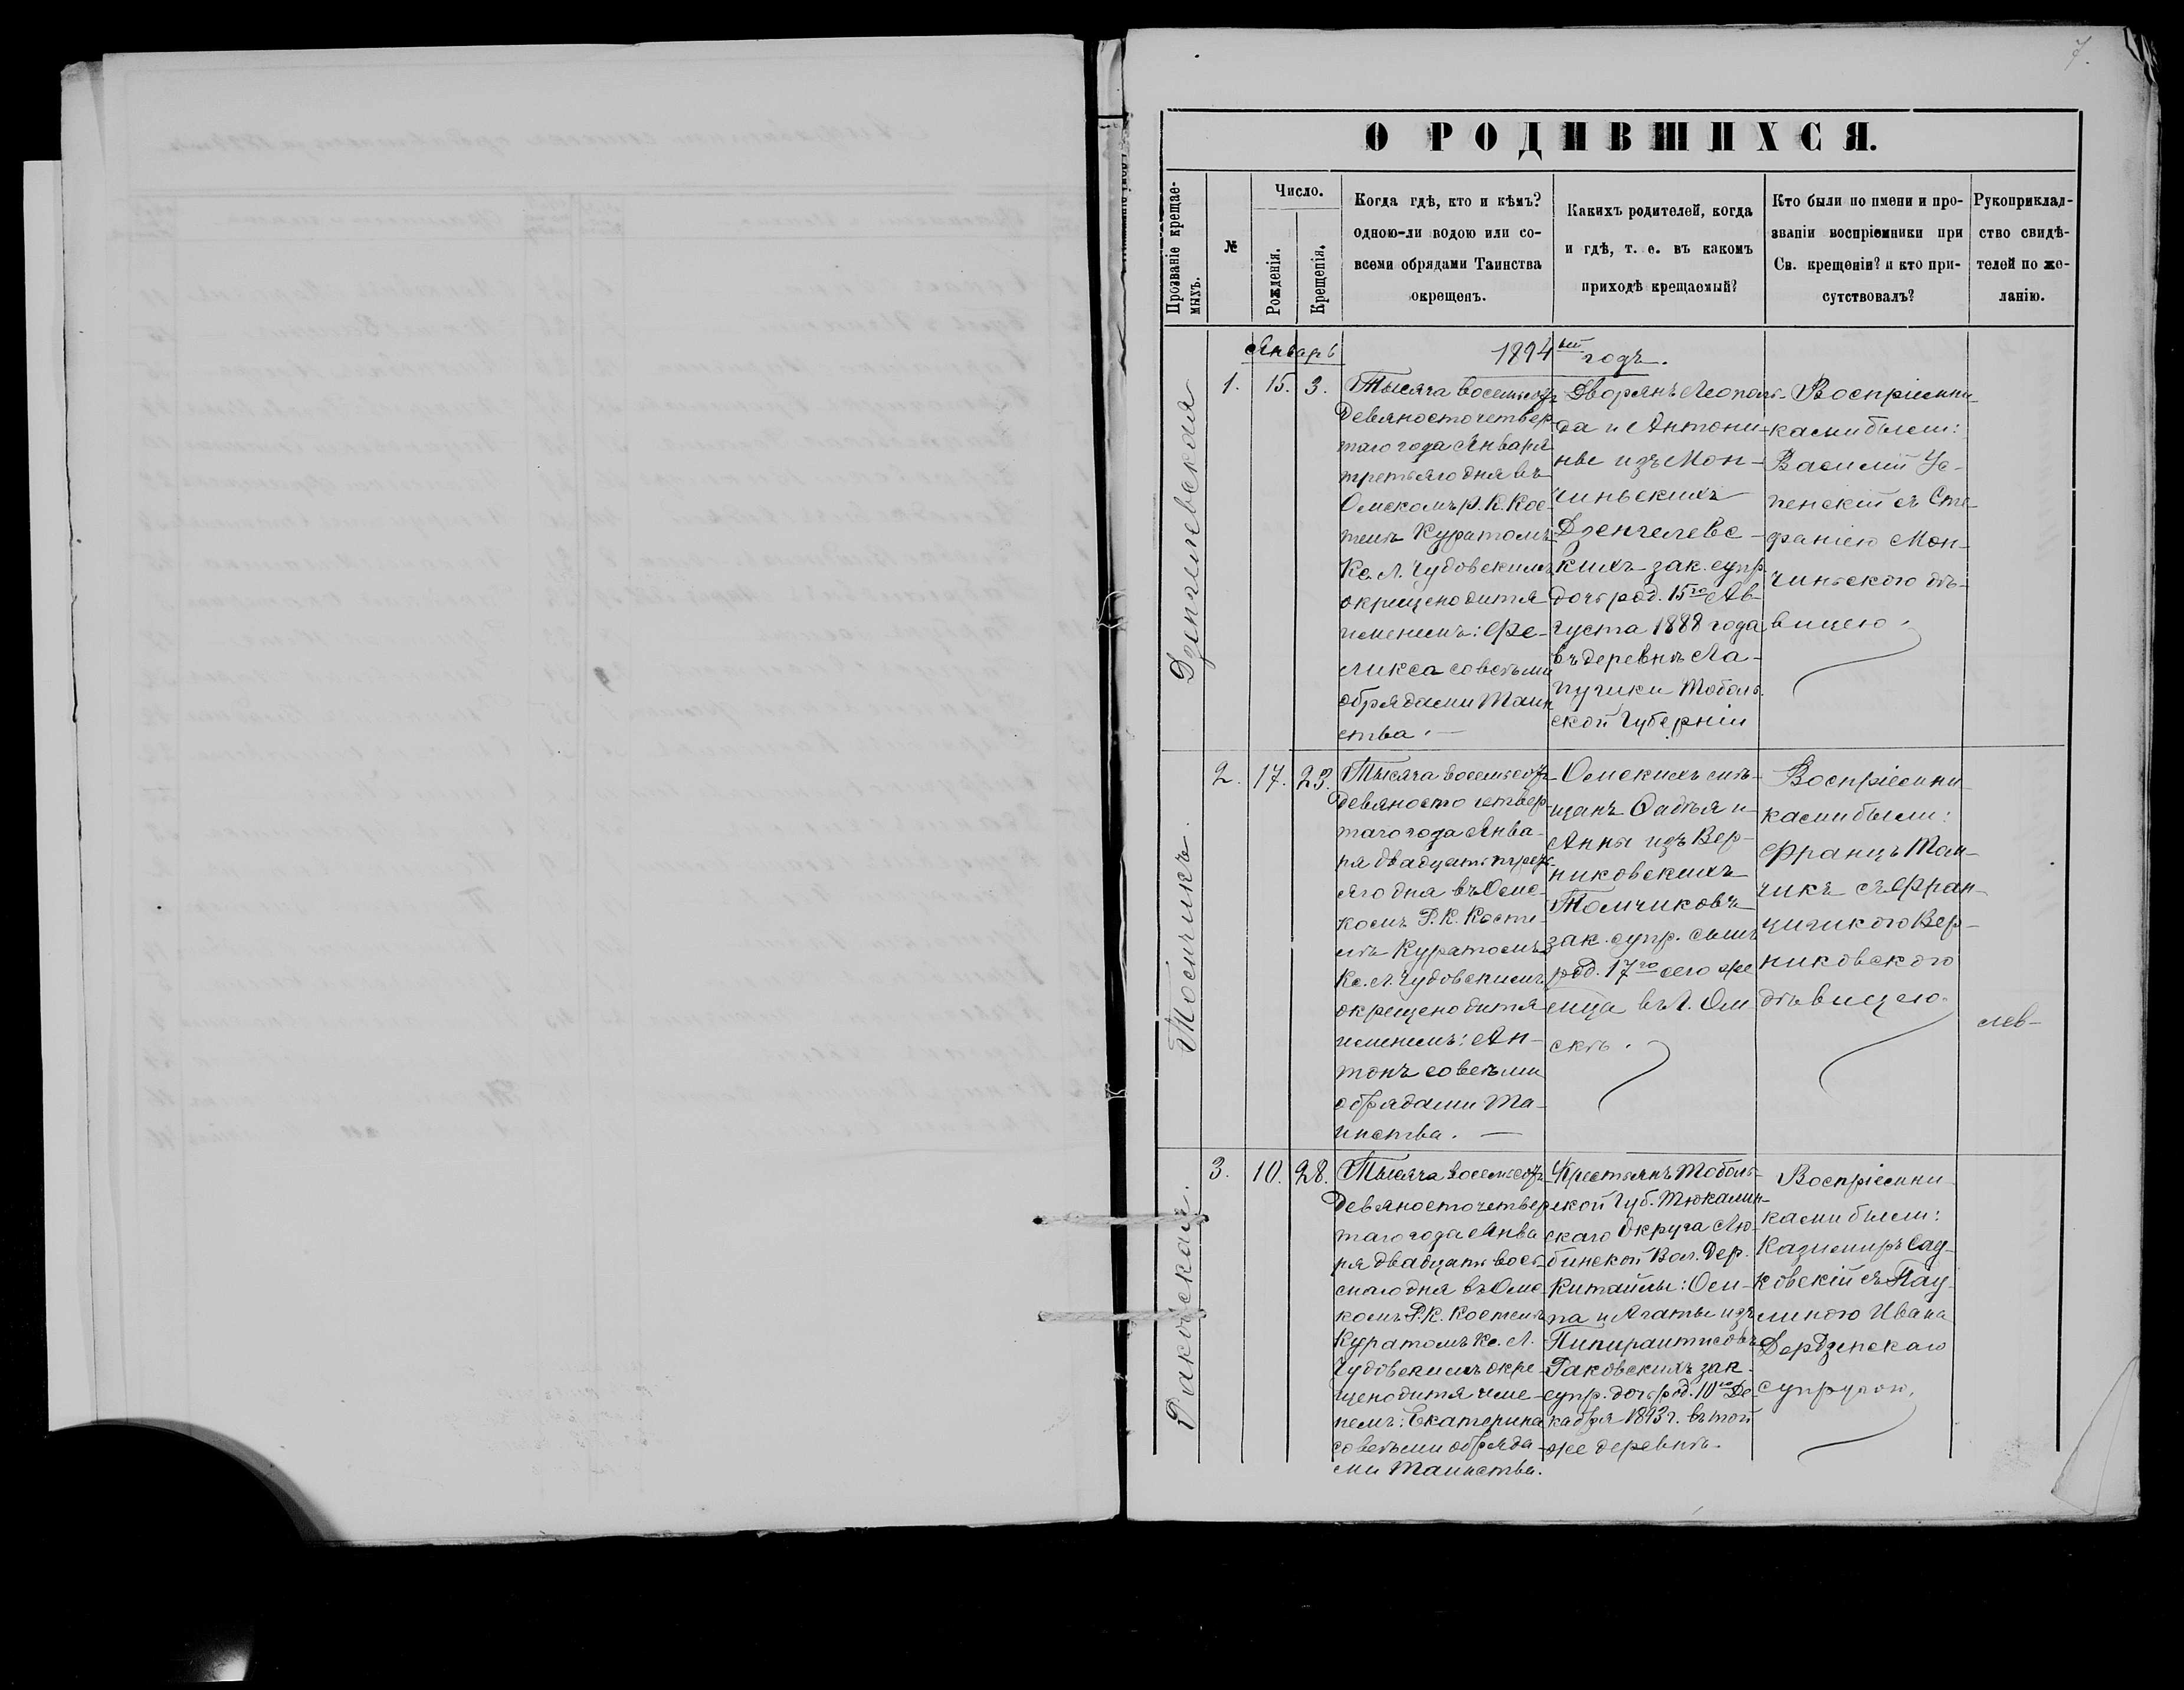 7.
О РОДИВШИХСЯ.
Прозваніе крещае-
мыхъ.
№
Число.
Рожденія.
Крещенія.
Когда гдѣ, кто и кѣмъ?
одною-ли водою или со-
всеми обрядами Таинства
окрещенъ.
Какихъ родителей, когда
и гдѣ, т. е. въ какомъ
приходѣ крещаемый?
Кто были по имени и про-
званіи воспріемники при
Св. крещеніи? и кто при-
сутствовалъ?
Рукоприклад-
ство свидѣ-
телей по же-
ланію.
Январь
1894ый годъ.
Дзенгелевская
1.
15.
3.
Тысяча восемьсотъ
девяносто четвер
таго года Января
третьяго дня въ
Омскомъ Р. К. Кос-
телѣ Куратомъ
Кс. Л. Чудовскимъ
окрещено дитя
именемъ: Фе-
ликса со всѣми
обрядами Таин
ства. —
Дворянъ Леополь-
да и Антони-
ны изъ Мон-
чиньскихъ
Дзенгелевс-
кихъ зак. супр.
дочь род. 15го Ав-
густа 1888 года
въ деревнѣ Ла-
пушки Тоболь.
ской Губерніи
Воспріемни-
ками были:
Василій Ус-
пенскій съ Сте-
фаніею Мон-
чиньского дѣ-
вицею.
Томчикъ.
2.
17.
23.
Тысяча восемьсотъ
девяносто четвер-
таго года Янва-
ря двадцать треть-
яго дня въ Омс-
комъ Р. К. Косте-
лѣ Куратомъ
Кс. Л. Чудовскимъ
окрещено дитя
именемъ: Ан-
тонъ со всѣми
обрядами Та-
инства. —
Омскихъ мѣ-
щанъ Фадѣя и
Анны изъ Вер-
никовскихъ
Томчиковъ
зак. супр. сынъ
род. 17го сего же
мца въ г. Ом-
скѣ.
Воспріемни-
ками были:
Францъ Том-
чикъ съ Фран-
цишкою Вер-
никовского
дѣвицею.
мев-
Раковская.
3.
10.
28.
Тысяча восемьсотъ
девяносто четвер
таго года Янва
ря двадцать вось
маго дня въ Омс-
комъ Р. К. Костелѣ
Куратомъ Кс. Л.
Чудовскимъ окре-
щено дитя име-
немъ: Екатерина
со всѣми обряда-
ми Таинства.
Крестьянъ Тоболь-
ской Губ. Тюкалин-
скаго Округа Лю-
бинской Вол. Дер.
Китайлы: Оси-
па и Агаты изъ
Раковскихъ зак.
супр. дочь род. 10го Де-
кабря 1893 г. въ той
же деревнѣ.
Воспріемни-
ками были:
Казимиръ Сад-
ковскій съ Пау-
линою Ивана
Дердзенскаго
супругою.